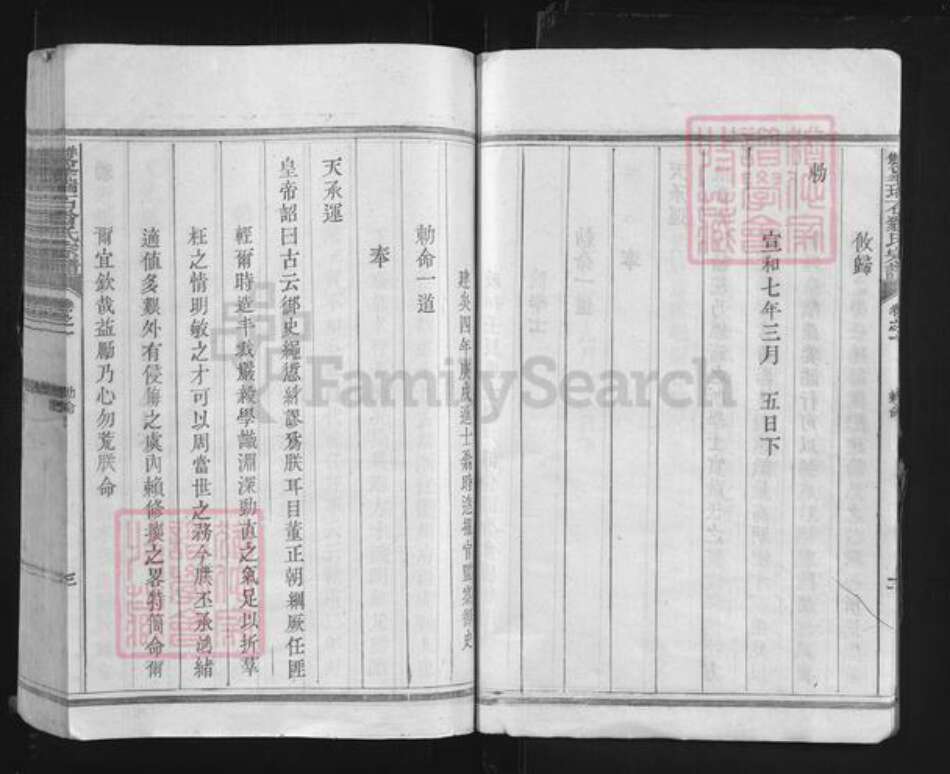 攸歸
勅
宣和七年三月 五日下
勅命
二
建炎四年庚戌進士羅時造擢官監察御史
勅命一道
奉
天承運
皇帝詔曰古云御史繩愆糾謬為朕耳目董正朝綱厥任匪
輕爾時造丰裁嚴毅學識淵深勁直之氣足以折羣
枉之情明敏之才可以周當世之務今朕丕承鴻緒
適值多艱外有侵侮之虞內賴修攘之畧特簡命爾
爾宜欽哉益勵乃心勿荒朕命
勅命
三
FamilySearch